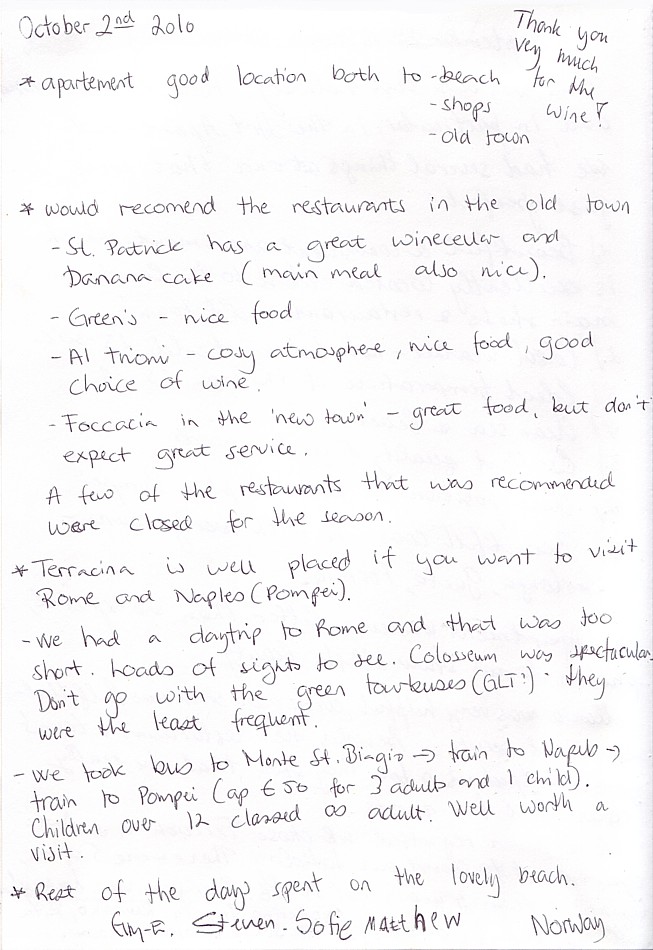 October 2nd 2010
Thank you
very much
for the
wine!
* apartement good location both to - beach
- shops
- old town
* would recomend the restaurants in the old town
- St. Patrick has a great winecellar and
banana cake (main meal also nice).
- Green's - nice food
- Al trioni - cosy atmosphere, nice food, good
choice of wine.
- Foccacia in the 'new town' - great food, but don't
expect great service.
A few of the restaurants that was recommended
were closed for the season.
* Terracina is well placed if you want to visit
Rome and Naples (Pompei).
- We had a daytrip to Rome and that was too
short. Loads of sights to see. Colosseum was spectacular.
Don't go with the green tourbuses (GLT!) they
were the least frequent.
- We took bus to Monte St. Biagio → train to Napels →
train to Pompei (ap € 50 for 3 adults and 1 child).
Children over 12 classed as adult. Well worth a
visit.
* Rest of the days spent on the lovely beach.
Steven. Sofie Matthew Norway